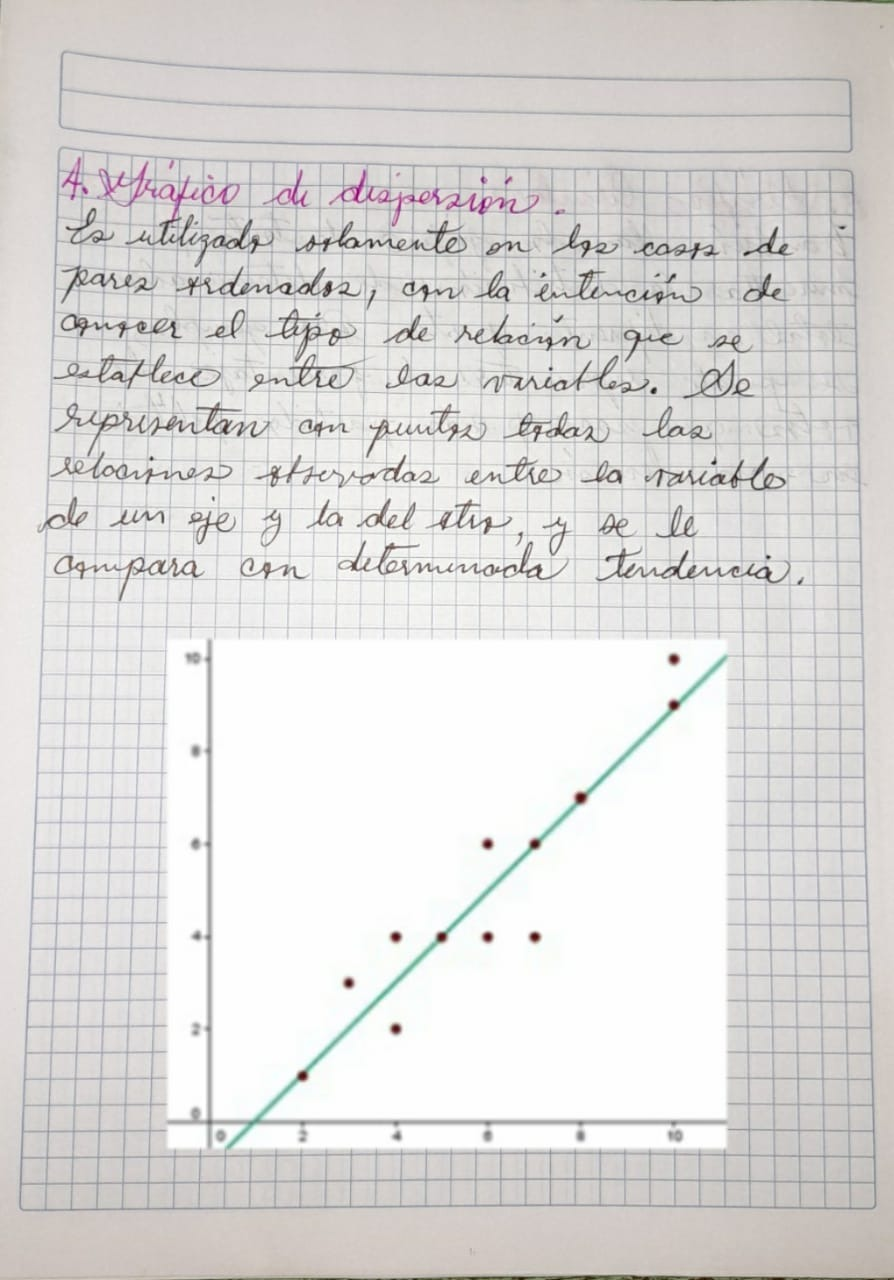 4. Gráfico de dispersión.
Es utilizado solamente en los casos de
pares ordenados, con la intención de
conocer el tipo de relación que se
establece entre las variables. Se
representan con puntos todas las
relaciones observadas entre la variable
de un eje y la del otro, y se le
compara con determinada tendencia.
10
8
6
4
2
0
0 2 4 6 8 10